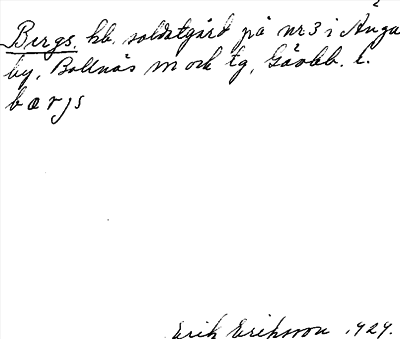 Bergs, hb. soldatgård på nr 3 i Ånga
by, Bollnäs m och tg, Gävleb. l.
bærjs
Erik Eriksson 1929.